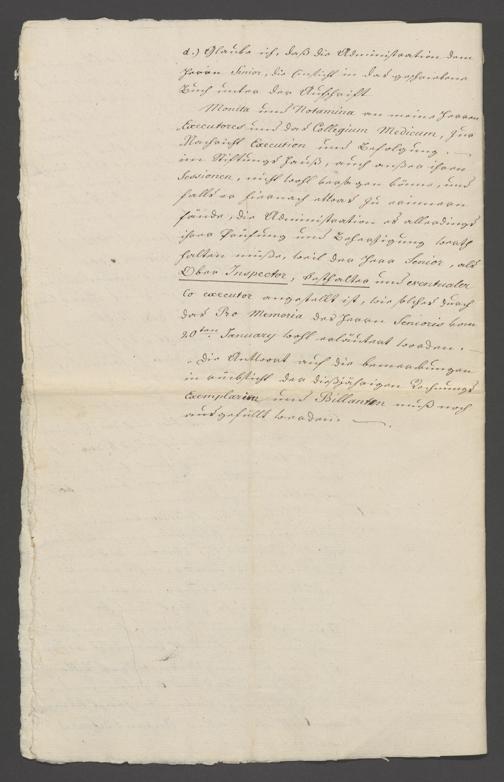 d.) Glaube ich, daß die Administration dem
Herrn Senior, die Einsicht in das geschriebene
Buch unter der Aufschrift
Monita und Notamina an meine Herren
Executores und das Collegium Medicum, zur
Nachricht Execution und Befolgung. —
im Stiftungs Hauß, auch außer ihren
Sessionen, nicht wohl versagen könne, und
falls er hiernach etwas zu erinnern
fände, die Administration es allerdings
ihrer Prüfung und Beherzigung werth
halten müße, weil der Herr Senior, als
Ober Inspector, Festhalter und eventualer
Co executor angestellt ist, wie solches durch
das Pro Memoria des Herrn Senioris vom
20ten January wohl erläutert worden. —
Die Antwort auf die bemerkungen
in rücksicht der dießjährigen Rechnungs
Exemplarien und Billanten muß noch
ausgefüllt werden. —